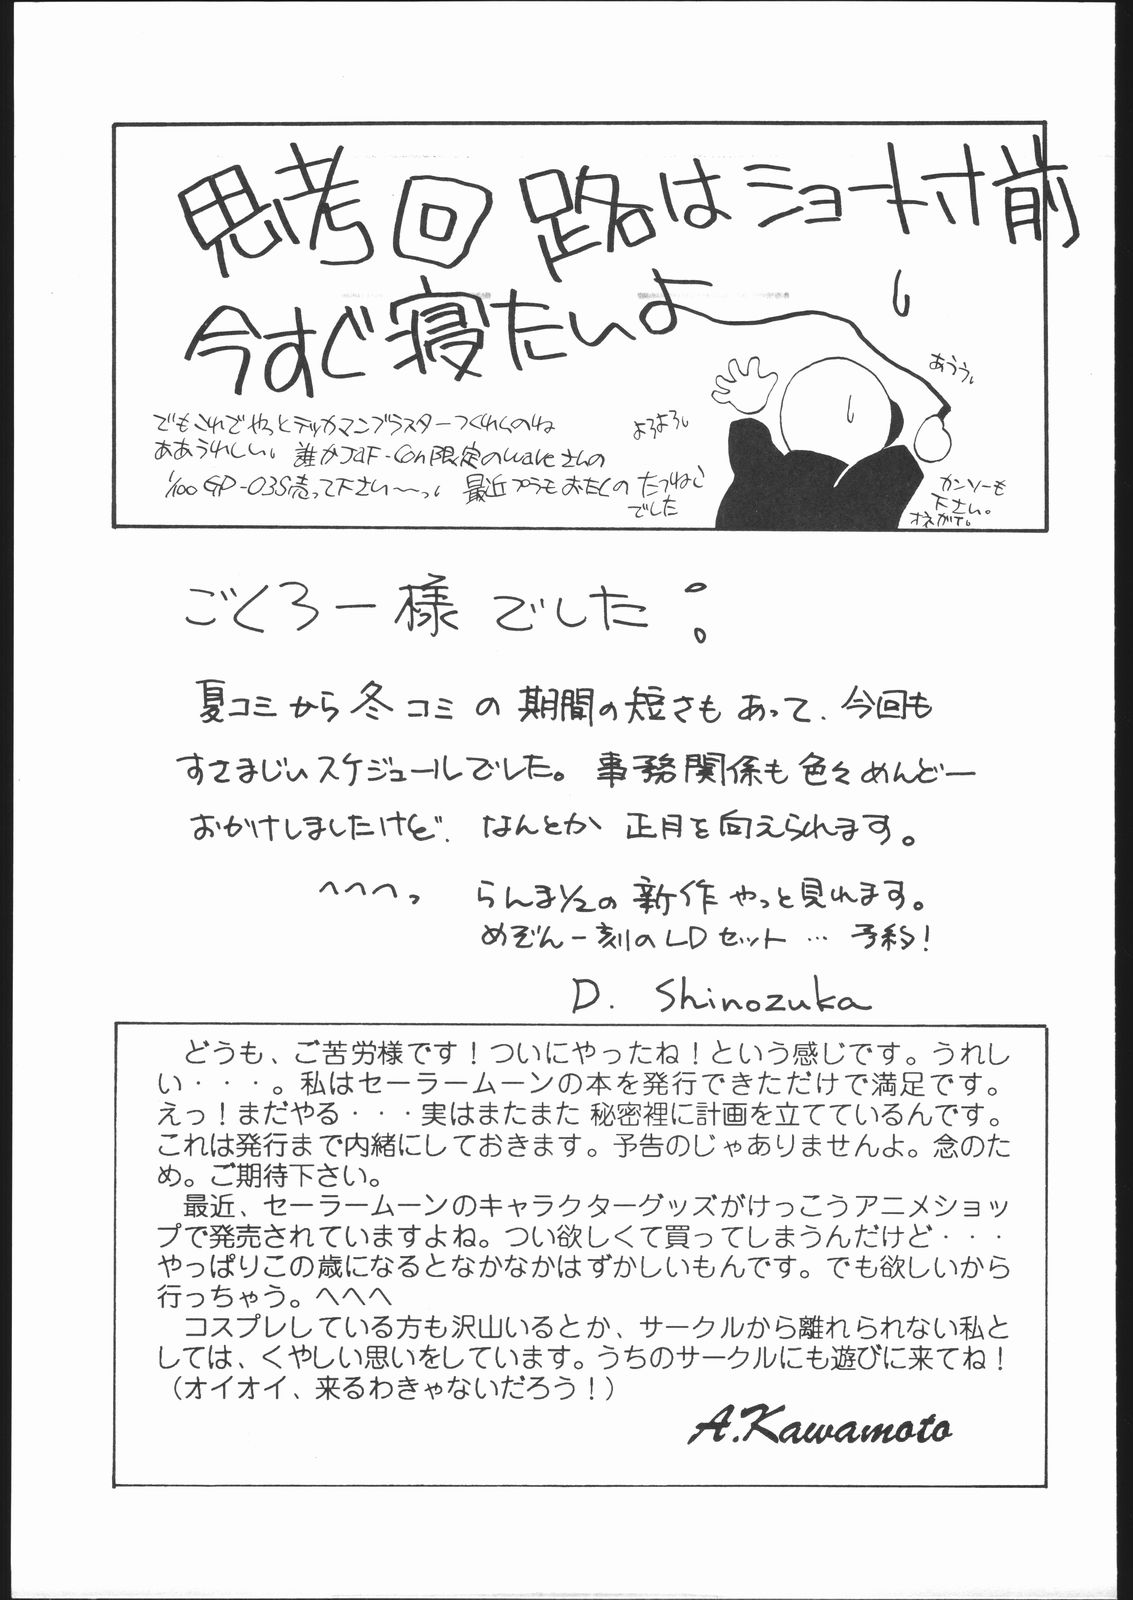 思考回路はショート寸前
今すぐ寝たいよ
でもこれでやっとテッカマンブラスターつくれるのね
ああうれしい。誰かJAF-Con限定のwaveさんの
1/100 GP-03S売って下さい〜っ。最近プラモおたくの
たつねこ
でした
よろよろ。
あうう。
カンソーも
下さい。
オネガイ。
ごくろー様でした!
夏コミから冬コミの期間の短さもあって、今回も
すさまじいスケジュールでした。事務関係も色々めんどー
おかけしましたけど、なんとか正月を向えられます。
へへへっ らんま1/2の新作やっと見れます。
めぞん一刻のLDセット…予約!
D. Shinozuka
どうも、ご苦労様です!ついにやったね!という感じです。うれし
い・・・。私はセーラームーンの本を発行できただけで満足です。
えっ!まだやる・・・実はまたまた秘密裡に計画を立てているんです。
これは発行まで内緒にしておきます。予告のじゃありませんよ。念のた
め。ご期待下さい。
最近、セーラームーンのキャラクターグッズがけっこうアニメショッ
プで発売されていますよね。つい欲しくて買ってしまうんだけど・・・
やっぱりこの歳になるとなかなかはずかしいもんです。でも欲しいから
行っちゃう。へへへ
コスプレしている方も沢山いるとか、サークルから離れられない私と
しては、くやしい思いをしています。うちのサークルにも遊びに来てね!
(オイオイ、来るわきゃないだろう!)
A.Kawamoto